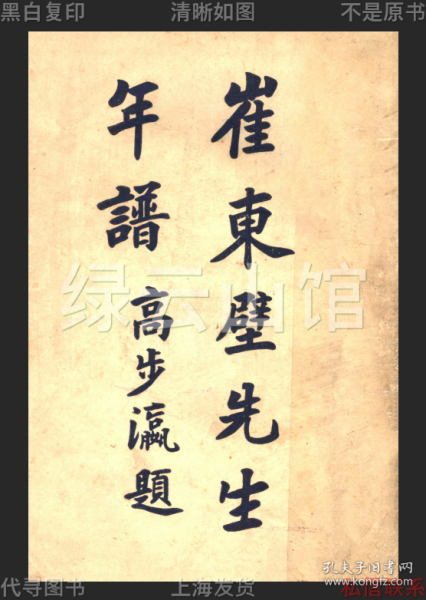 黑白复印 清晰如图 不是原书
崔東壁先生
年譜 高步瀛題
绿云山馆
孔夫子旧书网
www.kongfz.com
代寻图书 上海发货 私信联系